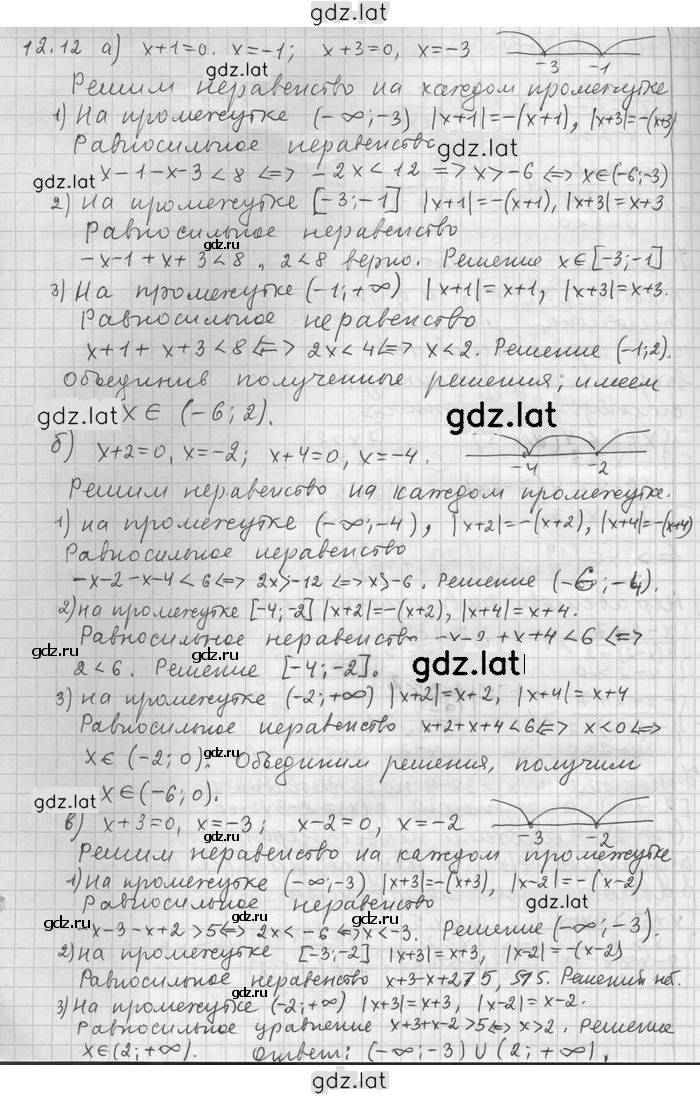 gdz.lat
12.12 а) x+1=0. x=-1; x+3=0, x=-3
-3 -1
gdz.lat
Решим неравенство на каждом промежутке
1) На промежутке (-∞;-3) |x+1|=-(x+1), |x+3|=-(x+3)
Равносильное неравенство
gdz.lat
x-1-x-3<8 <=> -2x<12 => x>-6 <=> x∈(-6;-3)
gdz.lat
2) На промежутке [-3;-1] |x+1|=-(x+1), |x+3|=x+3
Равносильное неравенство
gdz.ru
-x-1+x+3<8, 2<8 верно. Решение x∈[-3;-1]
3) На промежутке (-1;+∞) |x+1|=x+1, |x+3|=x+3.
Равносильное неравенство
x+1+x+3<8 <=> 2x<4 <=> x<2. Решение (-1;2).
Объединив полученные решения, имеем
gdz.lat x∈ (-6; 2).
gdz.lat
б) x+2=0, x=-2; x+4=0, x=-4.
-4 -2
Решим неравенство на каждом промежутке.
1) на промежутке (-∞;-4), |x+2|=-(x+2), |x+4|=-(x+4)
Равносильное неравенство
-x-2-x-4<6 <=> 2x>-12 <=> x>-6. Решение (-6;-4).
2) на промежутке [-4;-2] |x+2|=-(x+2), |x+4|=x+4.
Равносильное неравенство -x-2+x+4<6 <=>
gdz.ru
gdz.ru
2<6. Решение [-4;-2].
gdz.lat
3) на промежутке (-2;+∞) |x+2|=x+2, |x+4|=x+4
Равносильное неравенство x+2+x+4<6 <=> x<0 <=>
x∈ (-2; 0). Объединим решения, получим
gdz.ru
gdz.lat
x∈(-6; 0).
gdz.ru
в) x+3=0, x=-3; x-2=0, x=-2
-3 -2
Решим неравенство на каждом промежутке
gdz.ru
1) На промежутке (-∞;-3) |x+3|=-(x+3), |x-2|=-(x-2)
Равносильное неравенство
gdz.ru
-x-3-x+2>5 <=> 2x<-6 <=> x<-3. Решение (-∞;-3).
gdz.ru
2) На промежутке [-3;-2] |x+3|=x+3, |x-2|=-(x-2)
Равносильное неравенство x+3-x+2>5, 5>5. Решений нет.
gdz.ru
3) На промежутке (-2;+∞) |x+3|=x+3, |x-2|=x-2.
Равносильное уравнение x+3+x-2>5 <=> x>2. Решение
gdz.ru
x∈(2;+∞). Ответ: (-∞;-3) ∪ (2;+∞).
gdz.lat